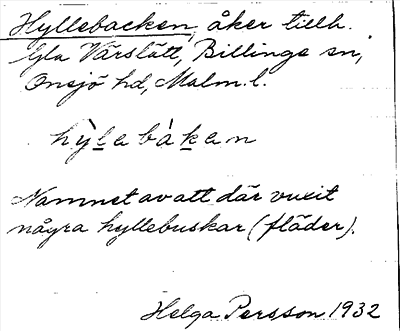 Hyllebacken, åker tillh.
Gla Vårslätt, Billinge sn,
Onsjö hd, Malm. l.
hỳlebàken
Namnet av att där vuxit
några hyllebuskar (fläder).
Helga Persson 1932